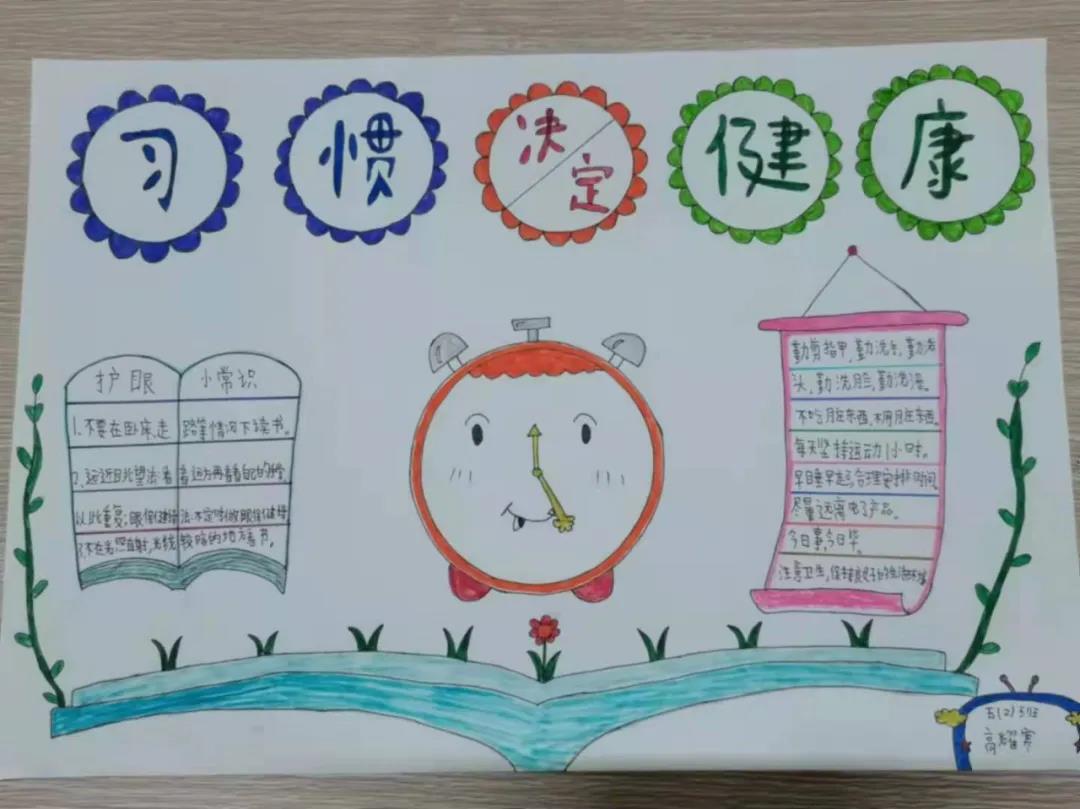 习惯决定健康
护眼 小常识
1.不要在卧床,走路等情况下读书。
2.远近目 望法:看着远方再看看自己的手
以此重复;眼保健操法:不定时做眼保健操
3.不在 直射,光线较暗的地方看书。
勤剪指甲,勤洗手,勤洗
头,勤洗脸,勤洗澡。
不吃脏东西,不用脏东西。
每天坚持运动1小时。
早睡早起,合理安排时间。
尽量远离电子产品。
今日事,今日毕。
注意卫生,保持良好的生活环境
五(2)班
高耀